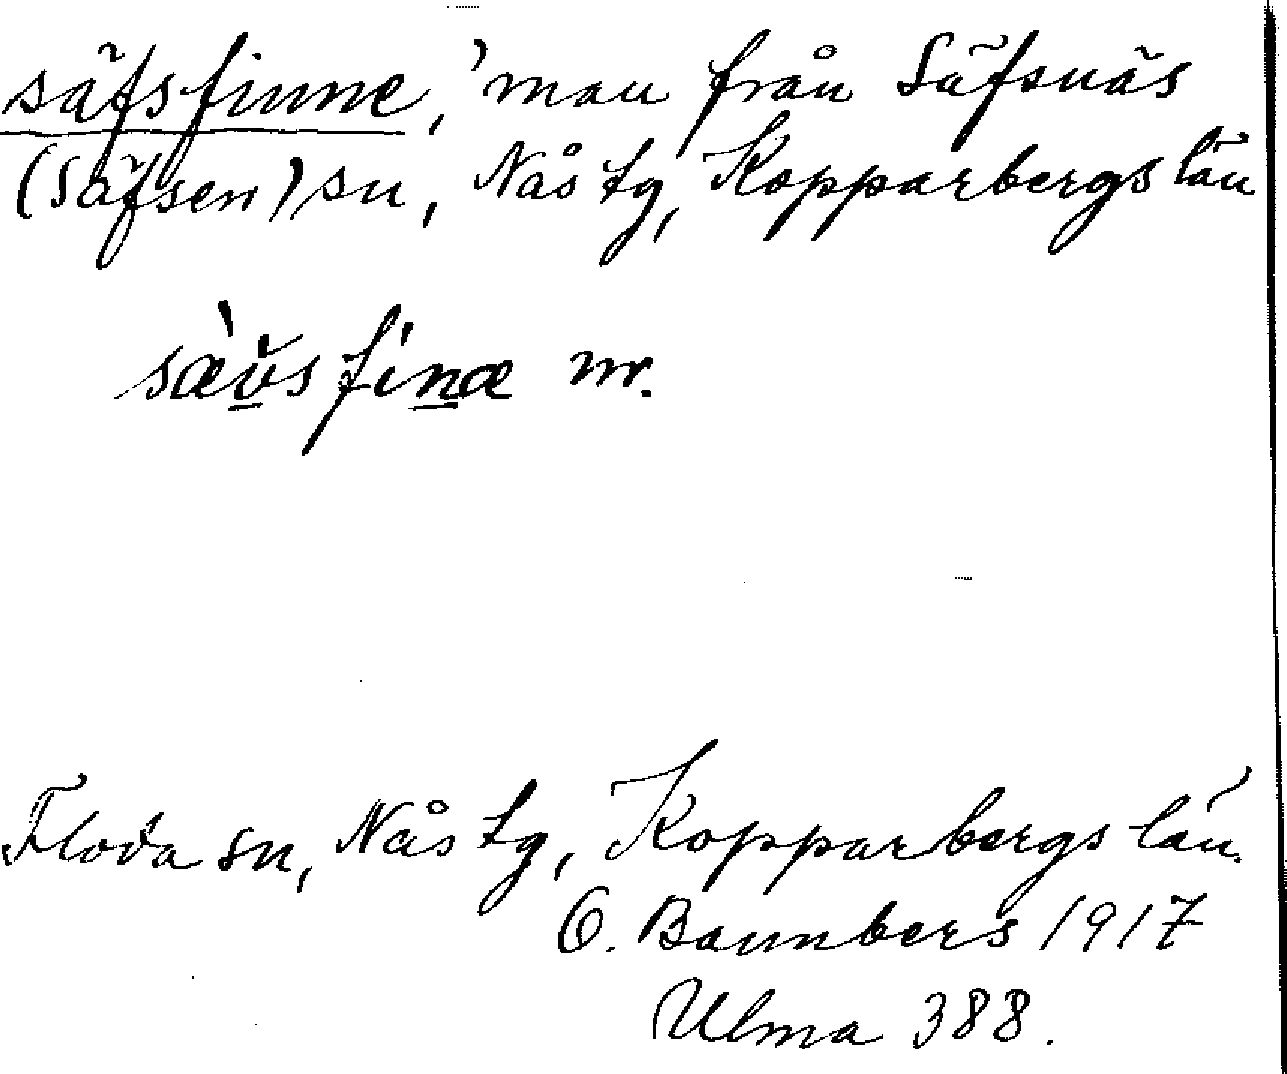 säfsfinne, 'man från Säfsnäs
(Säfsen) sn, Nås tg, Kopparbergs län
sæ̀v̆sfínæ mr.
Floda sn, Nås tg, Kopparbergs län.
O. Bannbers 1917
Ulma 388.